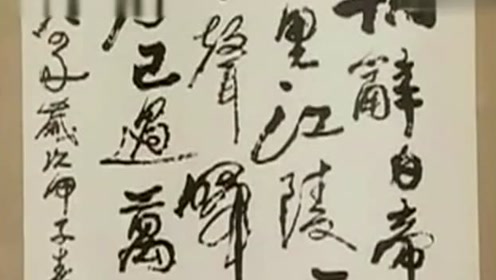 辭白帝
里江陵一
聲啼
舟已過萬
歲次甲子春